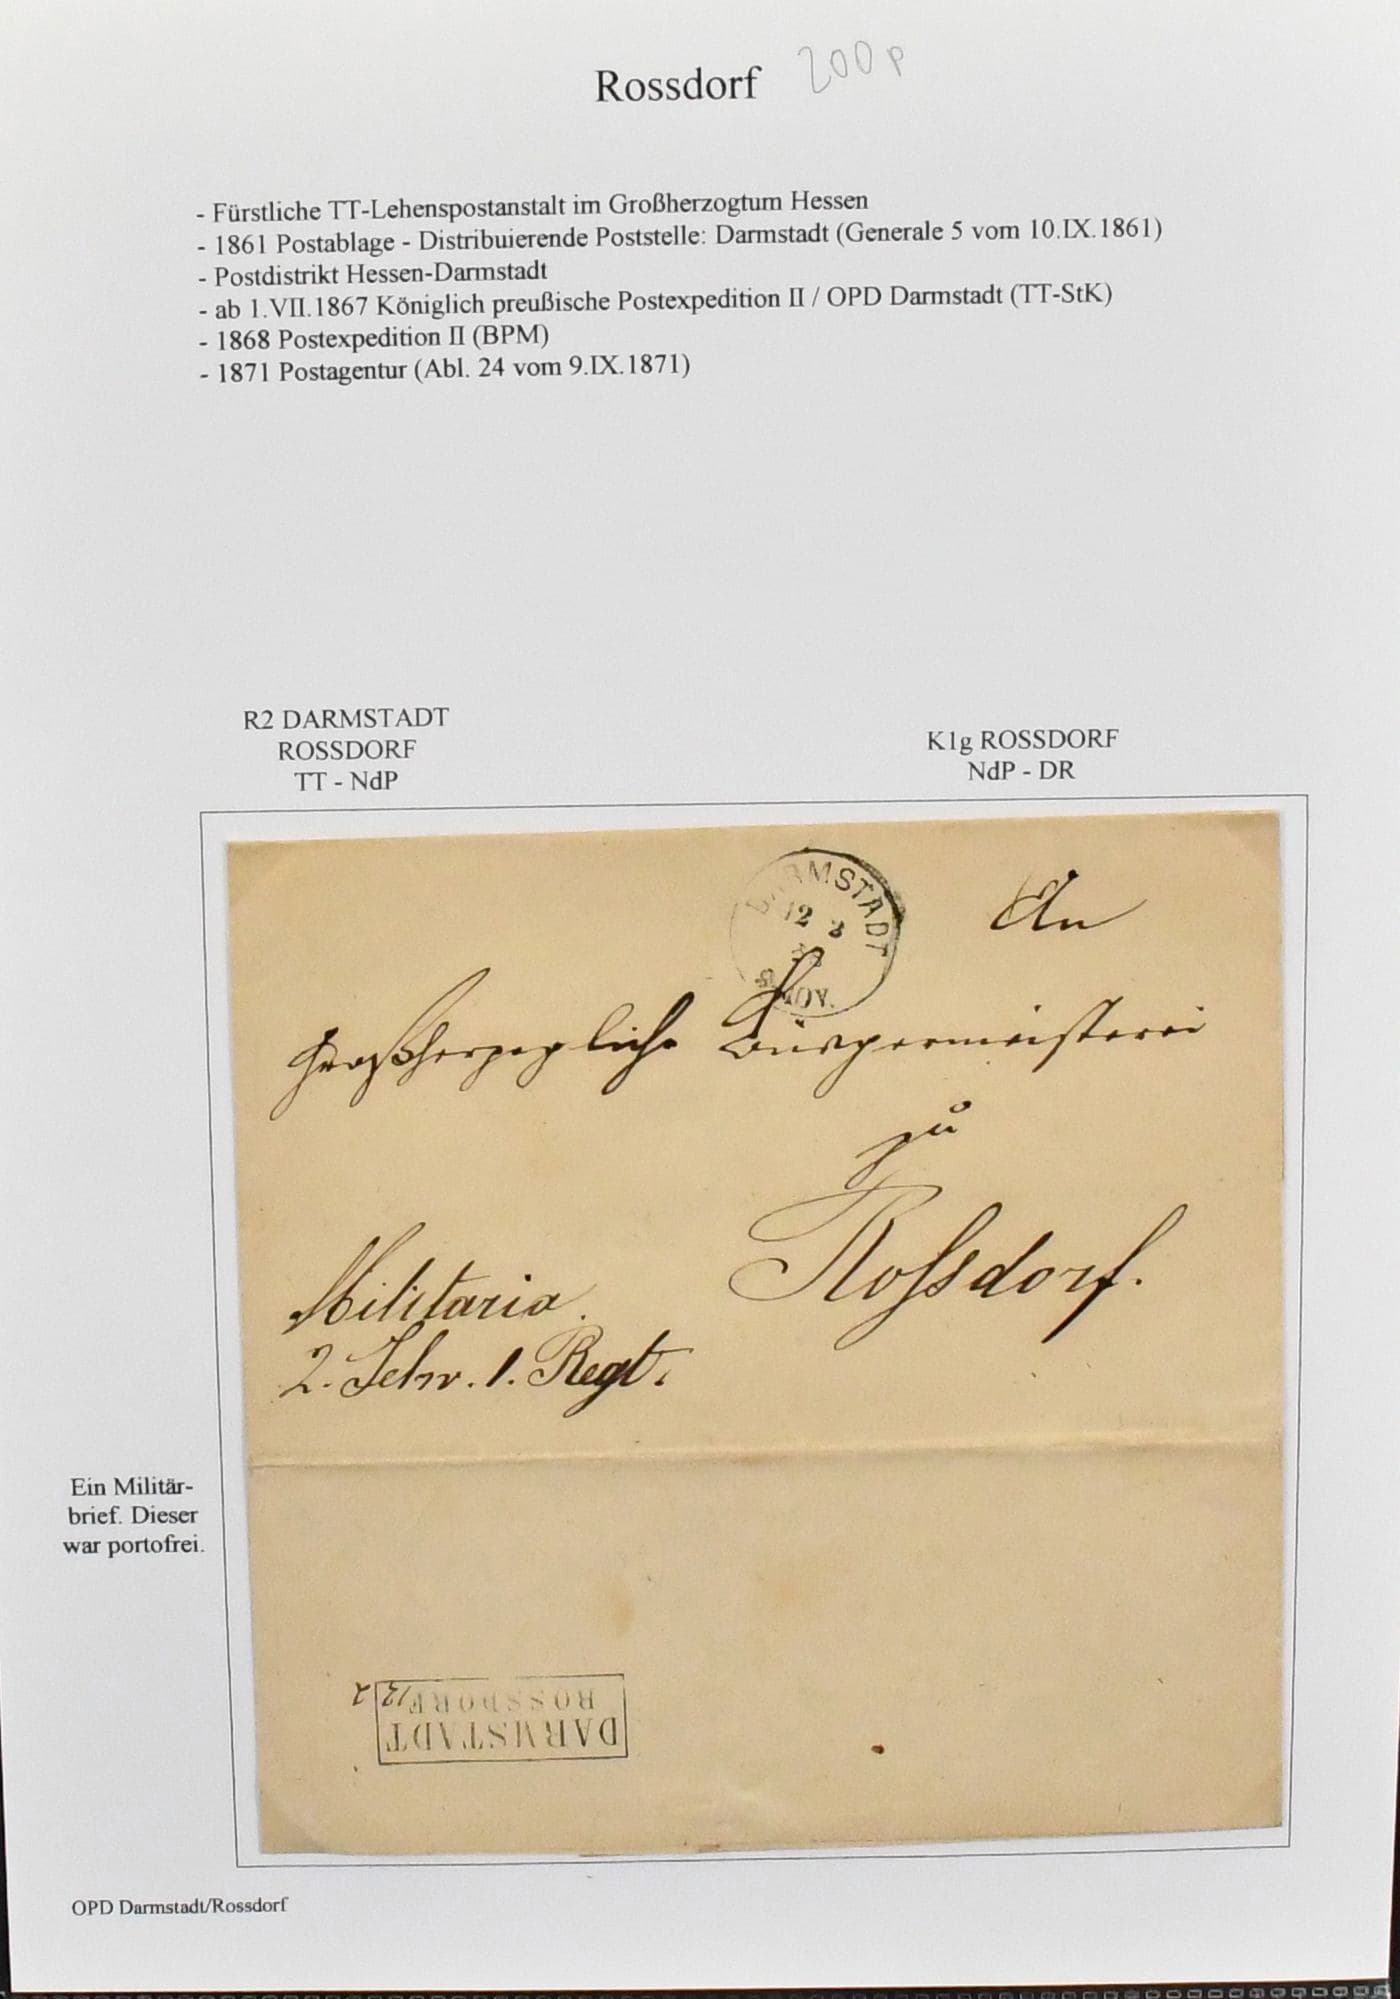 Rossdorf 200 p
- Fürstliche TT-Lehenspostanstalt im Großherzogtum Hessen
- 1861 Postablage - Distribuierende Poststelle: Darmstadt (Generale 5 vom 10.IX.1861)
- Postdistrikt Hessen-Darmstadt
- ab 1.VII.1867 Königlich preußische Postexpedition II / OPD Darmstadt (TT-StK)
- 1868 Postexpedition II (BPM)
- 1871 Postagentur (Abl. 24 vom 9.IX.1871)
R2 DARMSTADT
ROSSDORF
TT - NdP
K1g ROSSDORF
NdP - DR
DARMSTADT
12 3
An
Großherzogliche Bürgermeisterei
zu
Rossdorf.
Militaria.
2. Schw. 1. Regt.
Ein Militär-
brief. Dieser
war portofrei.
DARMSTADT
ROSSDORF
OPD Darmstadt/Rossdorf